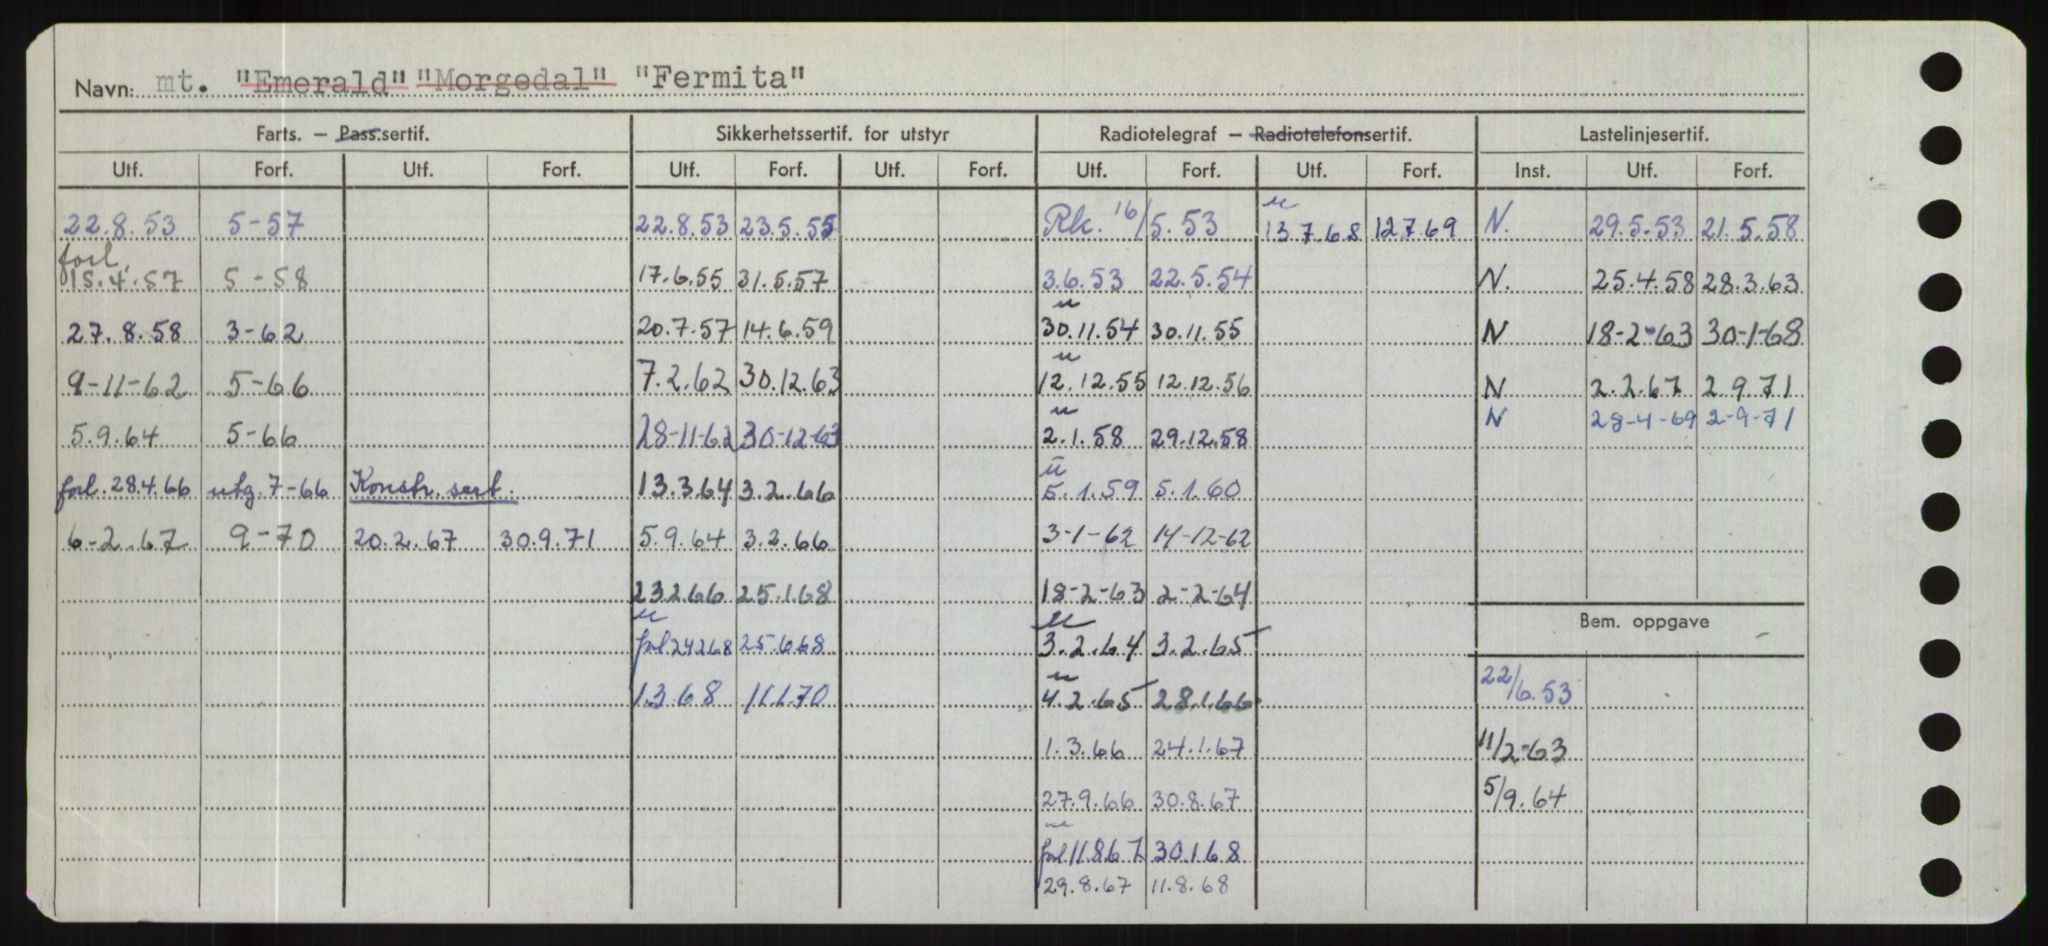 Navn: mt. "Emerald" "Morgedal" "Fermita"
Farts. — Pass.sertif. Sikkerhetssertif. for utstyr Radiotelegraf — Radiotelefonsertif. Lastelinjesertif.
Utf. Forf. Utf. Forf. Utf. Forf. Utf. Forf. Utf. Forf. Utf. Forf. Inst. Utf. Forf.
22.8.53 5-57 22.8.53 23.5.55 Rk. 16/5.53 u 13 7 68 12 7 69 N. 29.5.53 21.5.58
forl. 15.4.57 5-58 17.6.55 31.5.57 3.6.53 22.5.54 N. 25.4.58 28.3.63
27.8.58 3-62 20.7.57 14.6.59 u 30.11.54 30.11.55 N 18-2-63 30-1-68
9-11-62 5-66 7.2.62 30.12.63 u 12.12.55 12.12.56 N 2.2.67 2.9.71
5.9.64 5-66 28-11-62 30-12-63 u 2.1.58 29.12.58 N 28-4-69 2-9-71
forl. 28.4.66 utg. 7-66 Konstr. sert. 13.3.64 3.2.66 u 5.1.59 5.1.60
6-2.67 9-70 20.2.67 30.9.71 5.9.64 3.2.66 3-1-62 14-12-62
23 2 66 25.1.68 18-2-63 2-2-64
Bem. oppgave
u forl 24 2 68 25.6.68 u 3.2.64 3.2.65
1.3.68 11.1.70 u 4.2.65 28.1.66 22/6.53
1.3.66 24.1.67 11/2-63
27.9.66 30.8.67 5/9.64
u forl 11 8 67 30 1 68
29.8.67 11.8.68